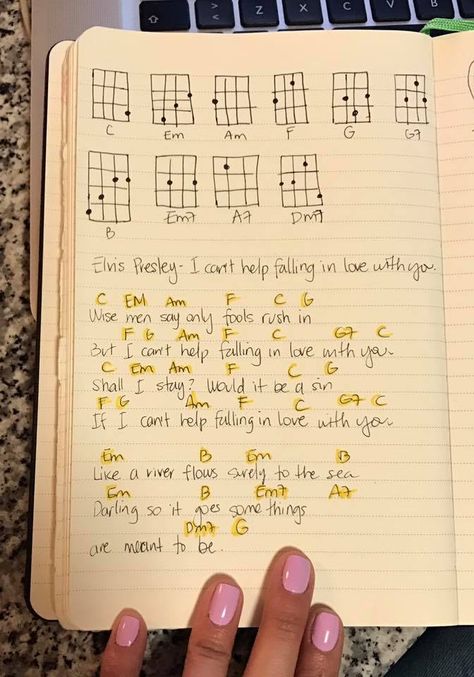 C Em Am F G G7
B Em7 A7 Dm7
Elvis Presley - I can't help falling in love with you.
C EM Am F C G
Wise men say only fools rush in
F G Am F C G7 C
But I can't help falling in love with you
C Em Am F C G
Shall I stay? Would it be a sin
F G Am F C G7 C
If I can't help falling in love with you
Em B Em B
Like a river flows surely to the sea
Em B Em7 A7
Darling so it goes some things
Dm7 G
are meant to be.